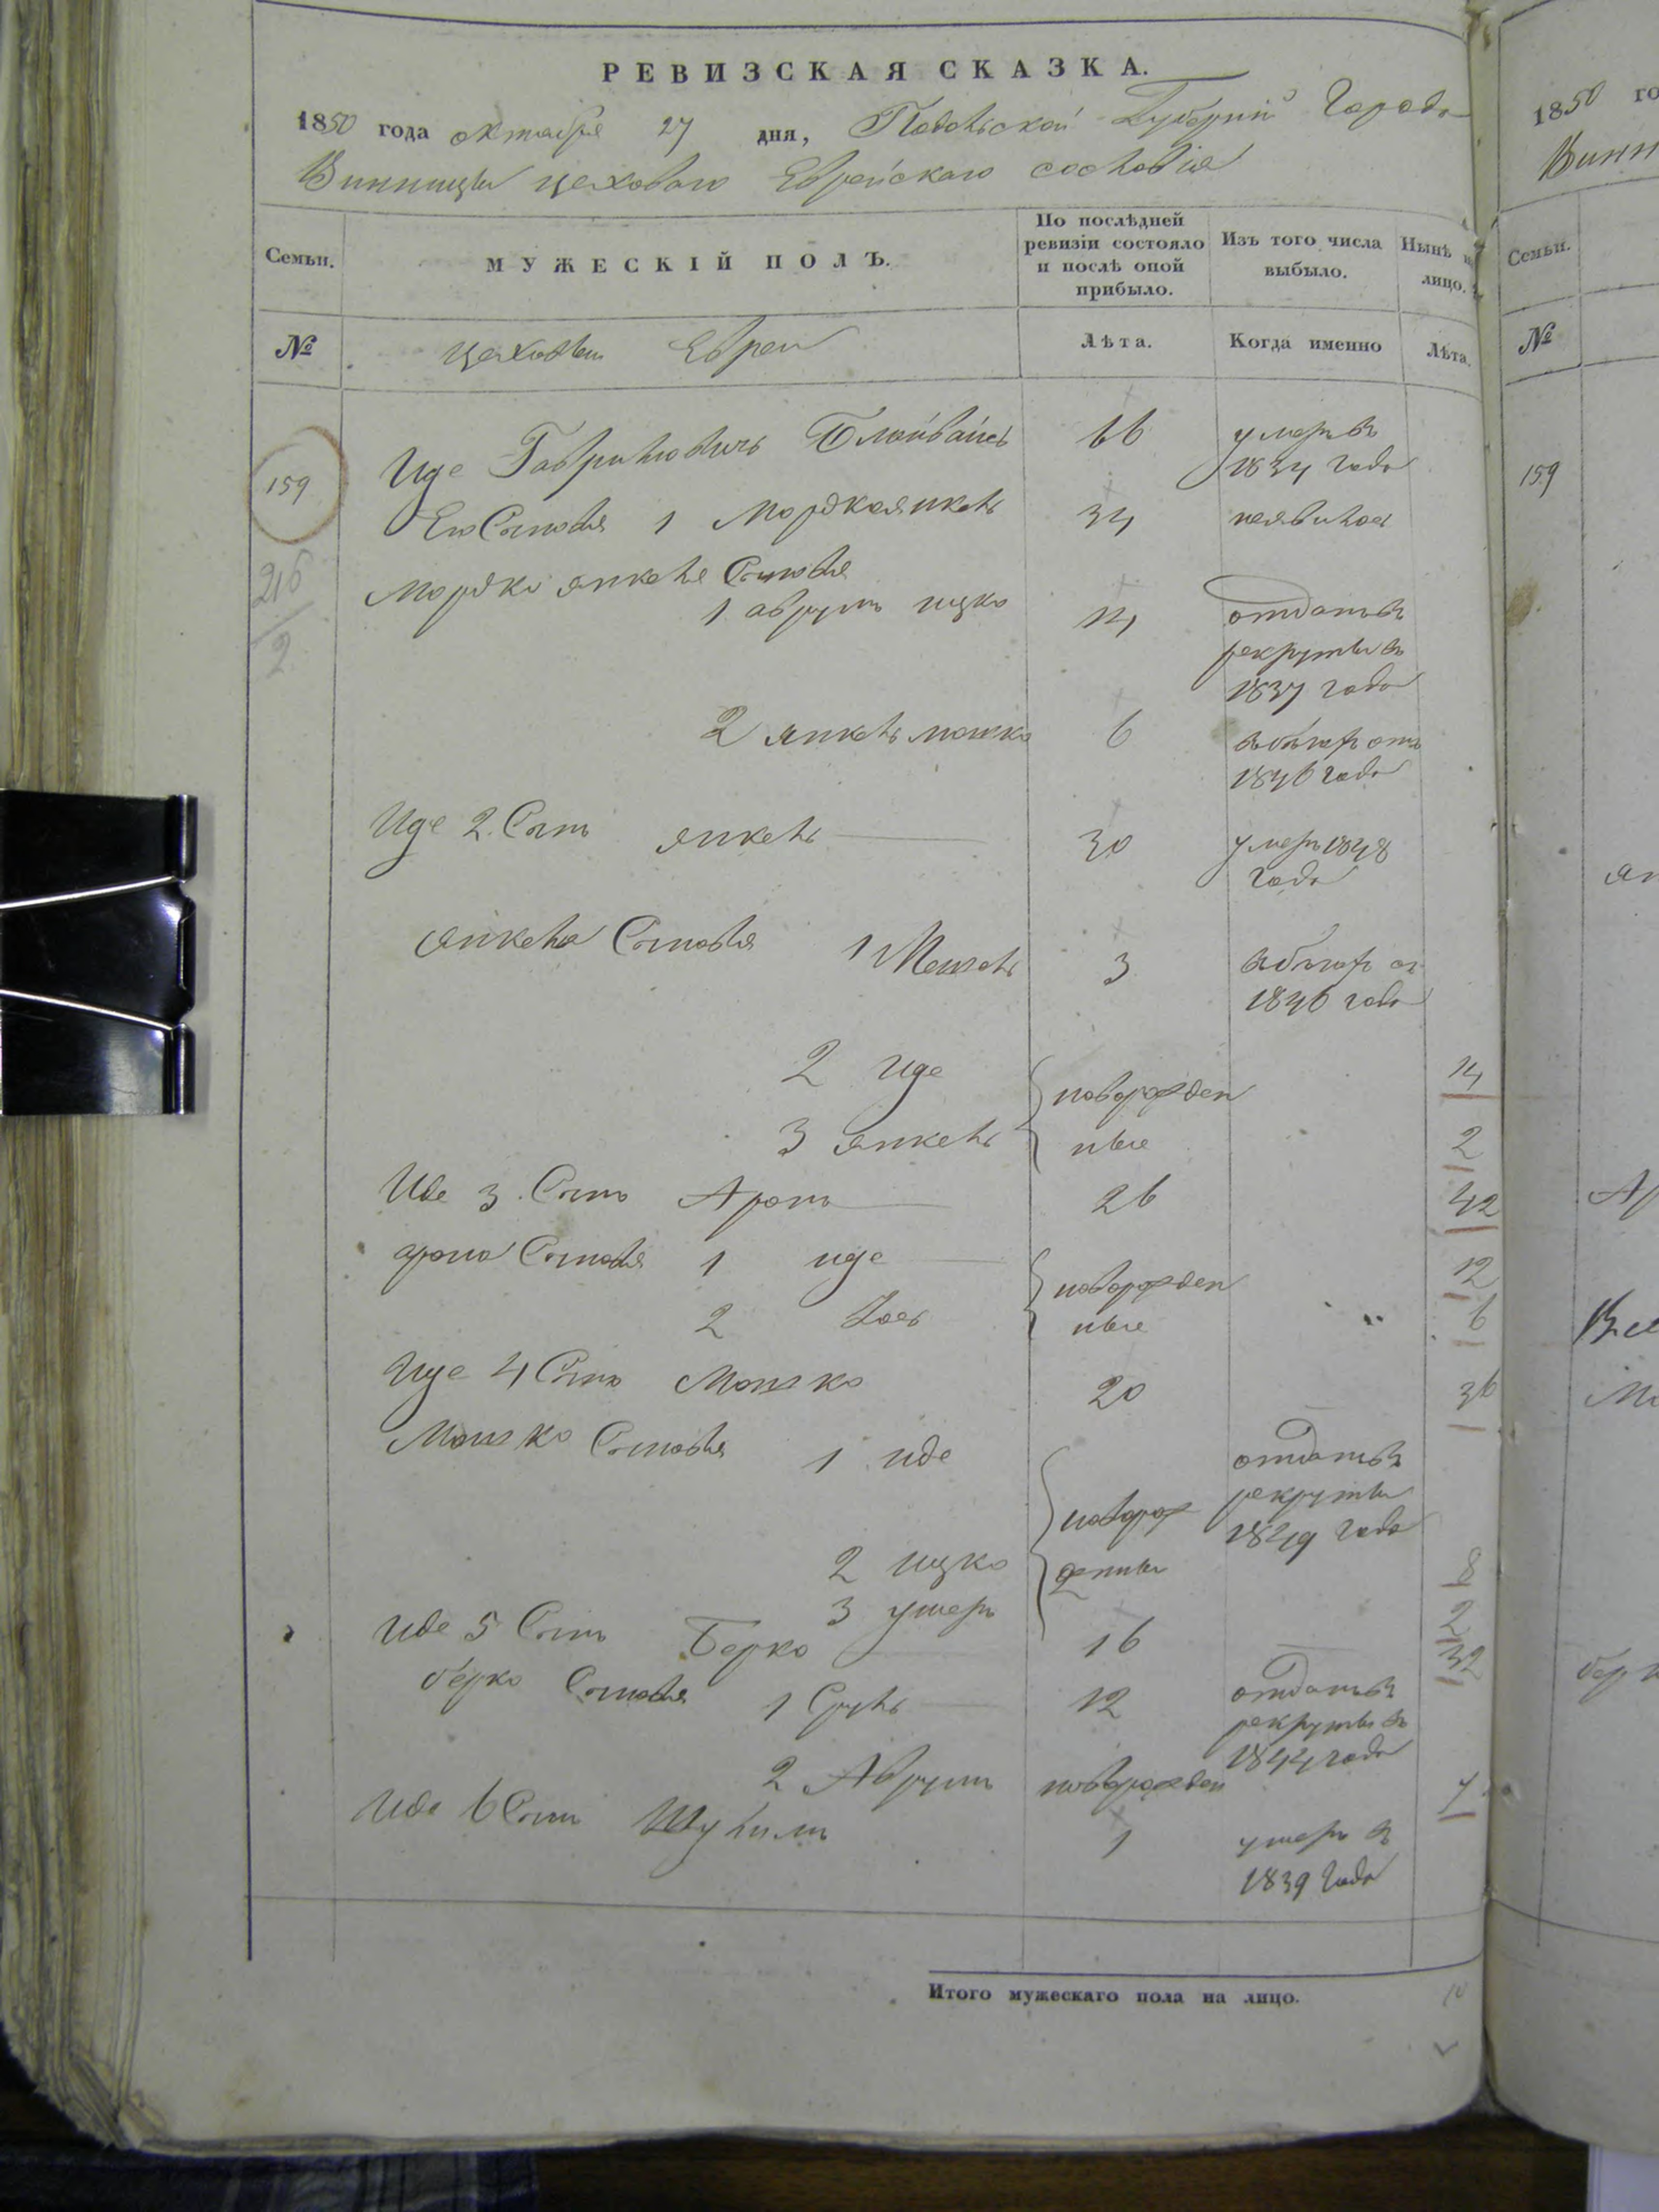 РЕВИЗСКАЯ СКАЗКА.
1850 года октября 27 дня, Подольской Губерніи Города
Винницы цеховаго Еврейскаго сословія
Семьи.
МУЖЕСКІЙ ПОЛЪ.
По послѣдней ревизіи состояло и послѣ оной прибыло.
Изъ того числа выбыло.
Нынѣ на лицо.
№
цеховыи Евреи
Лѣта.
Когда именно
Лѣта.
159 Иде Гаврилювичъ 66 умеръ въ
1834 года
Его Сыновья 1 Мордкоянкель 34 неявилось
216
2
Мордко янкеля Сыновья
1 аврумъ ицко 14 отданъ въ
рекруты въ
1837 года
2 янкель мошко 6 вбѣгах отъ
1846 года
Иде 2. Сынъ янкель 30 умеръ 1848
года
янкеля Сыновья 1 3 вбѣгах от
1846 года
2 иде новорожден 14
3 янкель ные 2
Иде 3. Сынъ Аронъ 26 42
арона Сыновья 1 иде новорожден 12
2 ные 6
Иде 4 Сынъ Мошко 20 36
Мошко Сыновья 1 иде отданъ въ
рекруты
новорож 1849 года
2 ицко денны 8
3 ушеръ 2
Иде 5 Сынъ Берко 16 32
берко Сыновья 1 Сруль 12 отданъ въ
рекруты въ
1844 года
2 Аврумъ новорожден 7
Иде 6 Сынъ Шулимъ 1 умеръ в
1839 года
Итого мужескаго пола на лицо. 10
1850 го
Винн
Семьи.
№
159
ян
Ар
Мо
берк